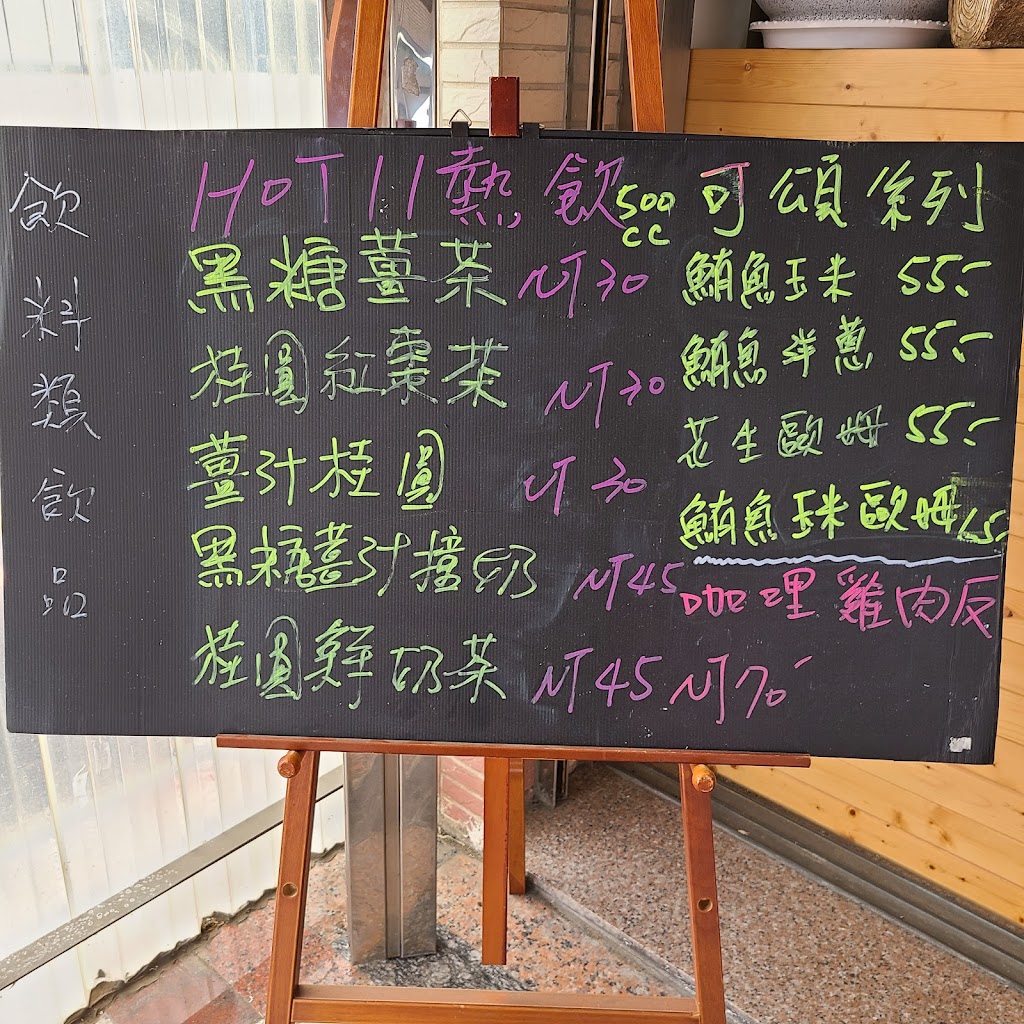 飲料類飲品
HOT !! 熱飲 500cc
黑糖薑茶 NT30
桂圓紅棗茶 NT30
薑汁桂圓 NT30
黑糖薑汁撞奶 NT45
桂圓鮮奶茶 NT45
可頌系列
鮪魚玉米 55.-
鮪魚洋蔥 55.-
花生歐姆 55.-
鮪魚玉米歐姆
咖哩雞肉反
NT70